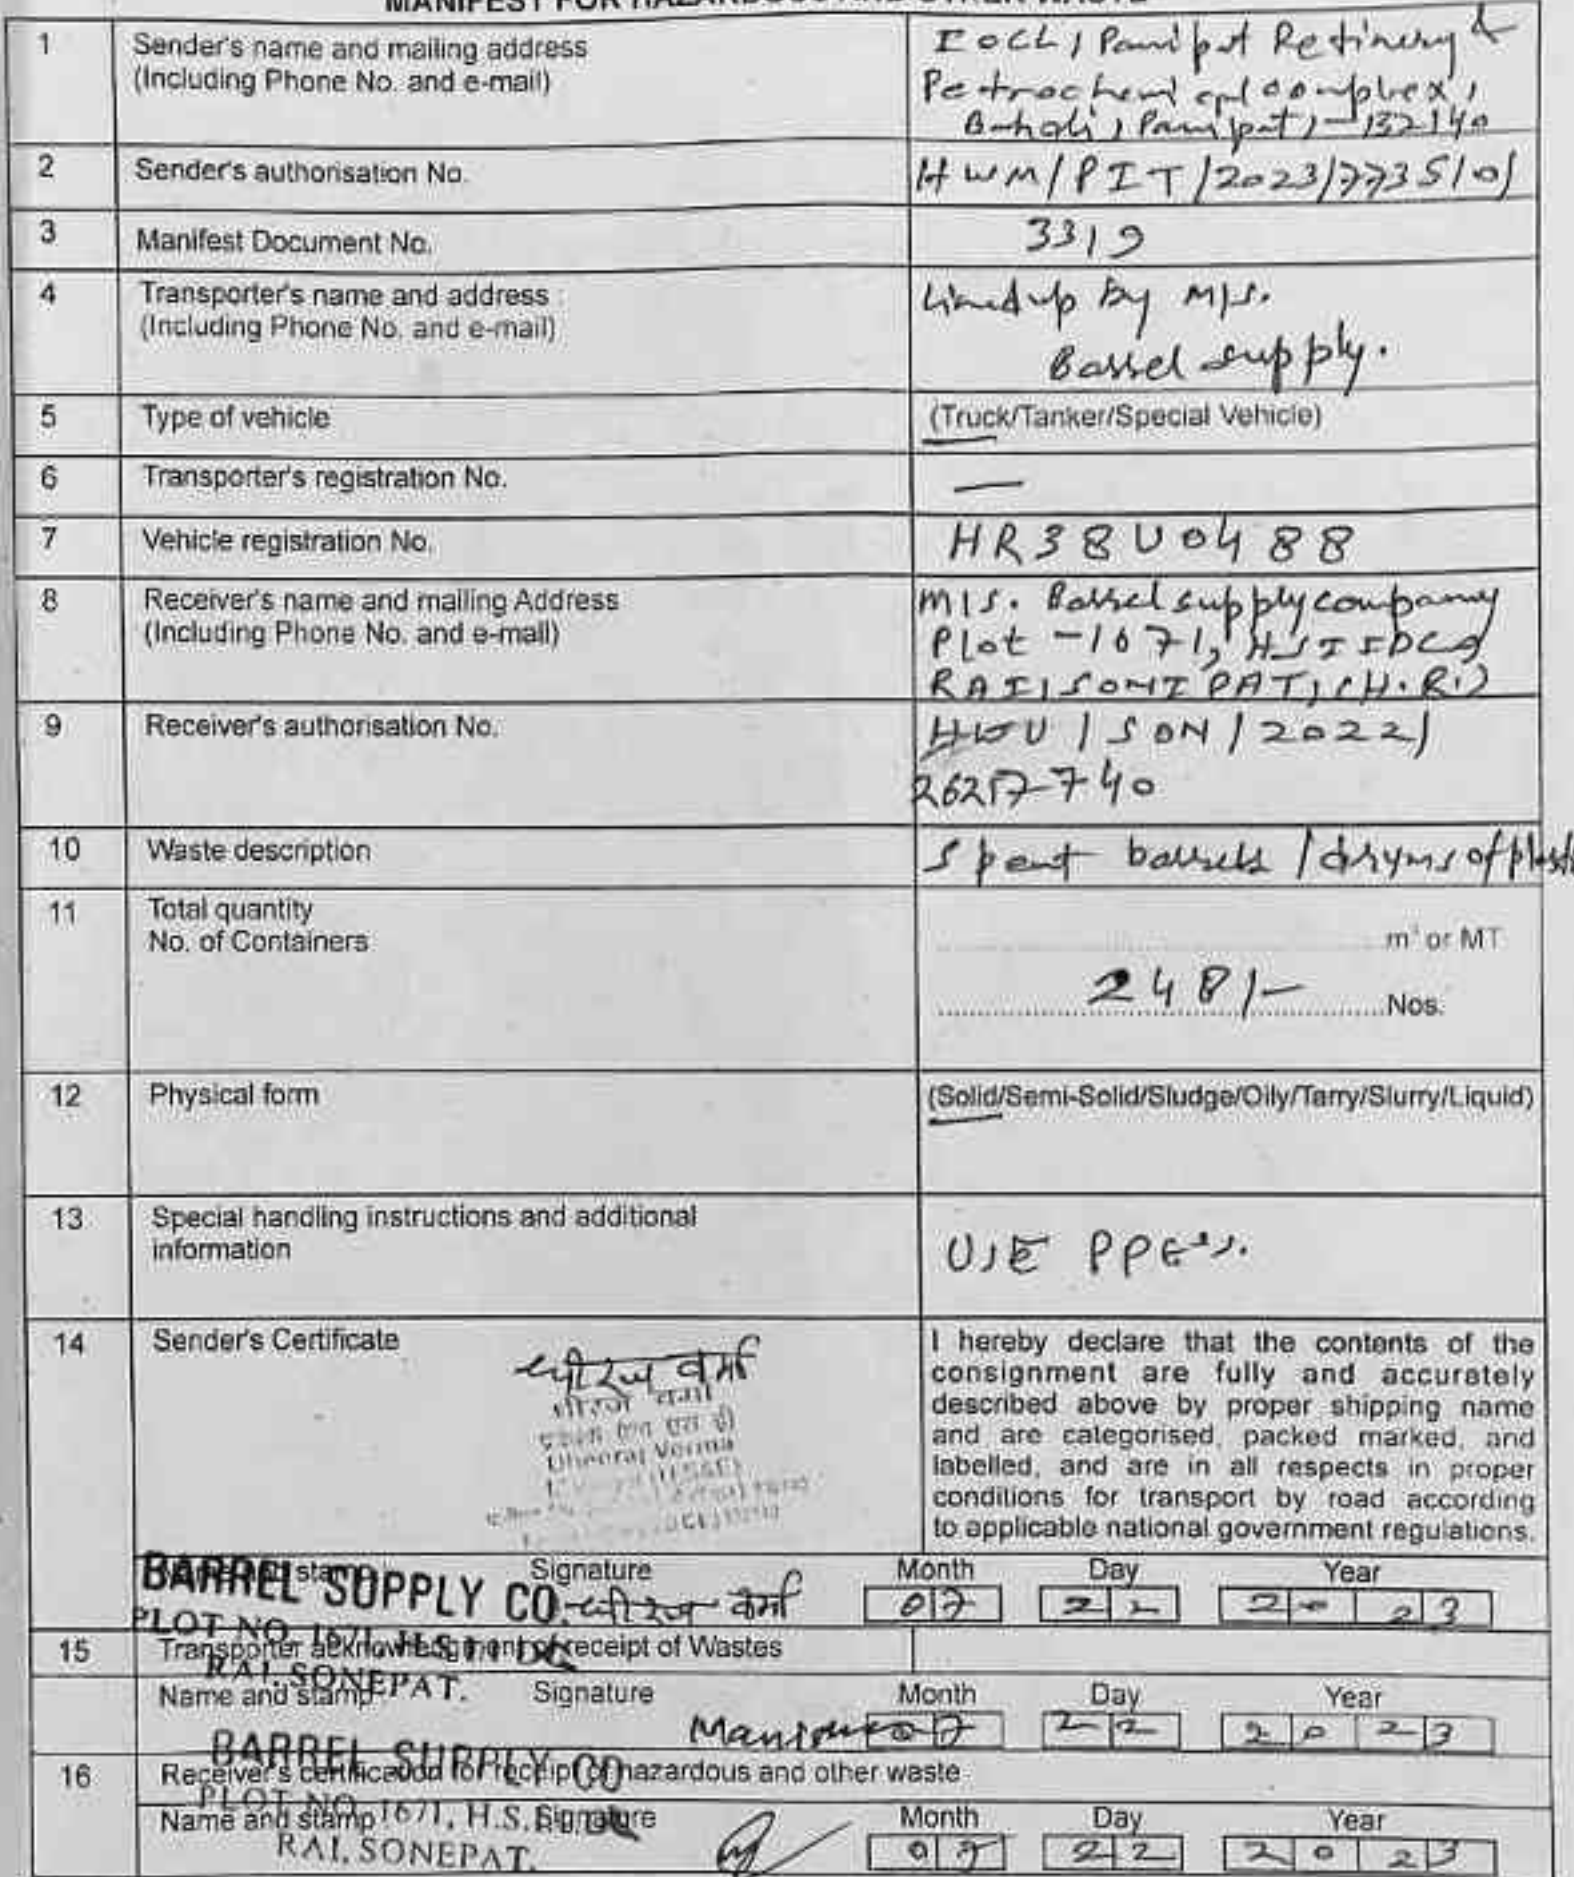 MANIFEST FOR HAZARDOUS AND OTHER WASTE
1 Sender's name and mailing address
(Including Phone No. and e-mail)
IOCL, Panipat Refinery &
Petrochemical complex,
Baholi, Panipat, -132140
2 Sender's authorisation No.
HWM/PIT/2023/7735101
3 Manifest Document No.
3319
4 Transporter's name and address :
(Including Phone No. and e-mail)
Linedup By M/s.
Barrel supply.
5 Type of vehicle
(Truck/Tanker/Special Vehicle)
6 Transporter's registration No.
—
7 Vehicle registration No.
HR38U0488
8 Receiver's name and mailing Address
(Including Phone No. and e-mail)
M/s. Barrel supply company
Plot -1671, HSIIDC,
RAI, SONIPAT, (H.R.)
9 Receiver's authorisation No.
SON/2022/
10 Waste description
Spent barrels / drums of
11 Total quantity
No. of Containers
m³ or MT
248/- Nos.
12 Physical form
(Solid/Semi-Solid/Sludge/Oily/Tarry/Slurry/Liquid)
13 Special handling instructions and additional
information
USE PPE's.
14 Sender's Certificate
धीरज वर्मा
धीरज वर्मा
Dheeraj Verma
I hereby declare that the contents of the
consignment are fully and accurately
described above by proper shipping name
and are categorised, packed marked, and
labelled, and are in all respects in proper
conditions for transport by road according
to applicable national government regulations.
Name and stamp Signature Month Day Year
धीरज वर्मा 07 22 2023
BARREL SUPPLY CO.
PLOT NO. 1671, H.S.I.I.DC
RAI, SONEPAT.
15 Transporter acknowledgment of receipt of Wastes
Name and stamp Signature Month Day Year
07 22 2023
BARREL SUPPLY CO
PLOT NO. 1671, H.S.I.I.DC
RAI, SONEPAT.
16 Receiver's certification for receipt of hazardous and other waste
Name and stamp Signature Month Day Year
07 22 2023